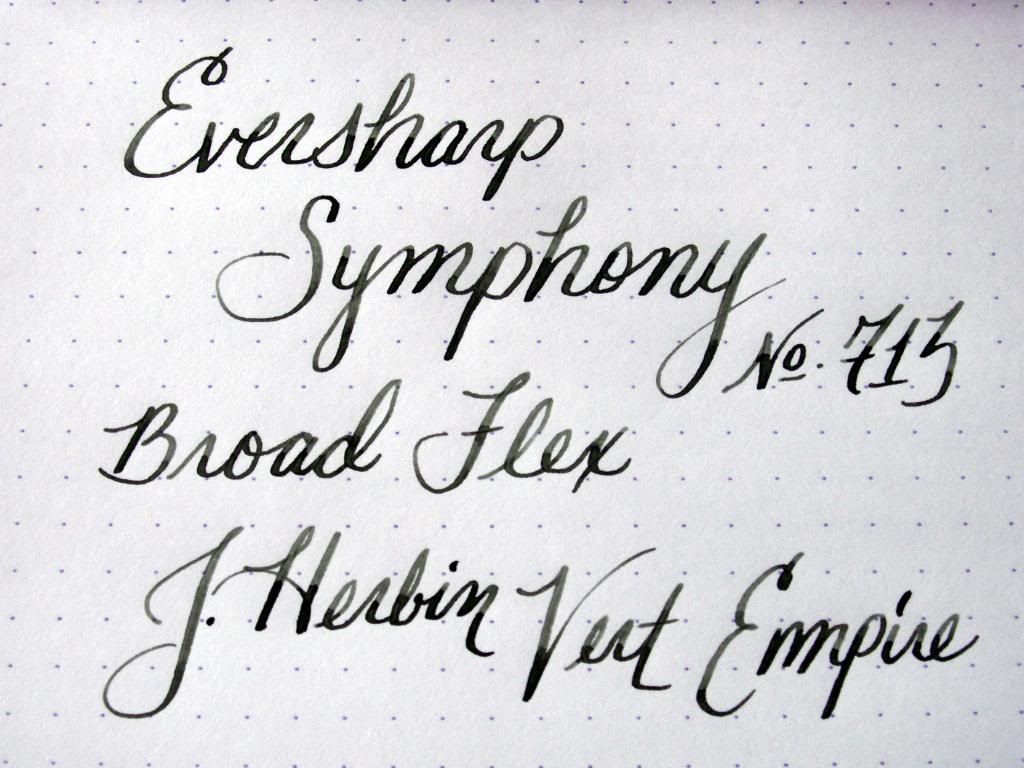 Eversharp
Symphony
No. 713
Broad Flex
J. Herbin Vert Empire